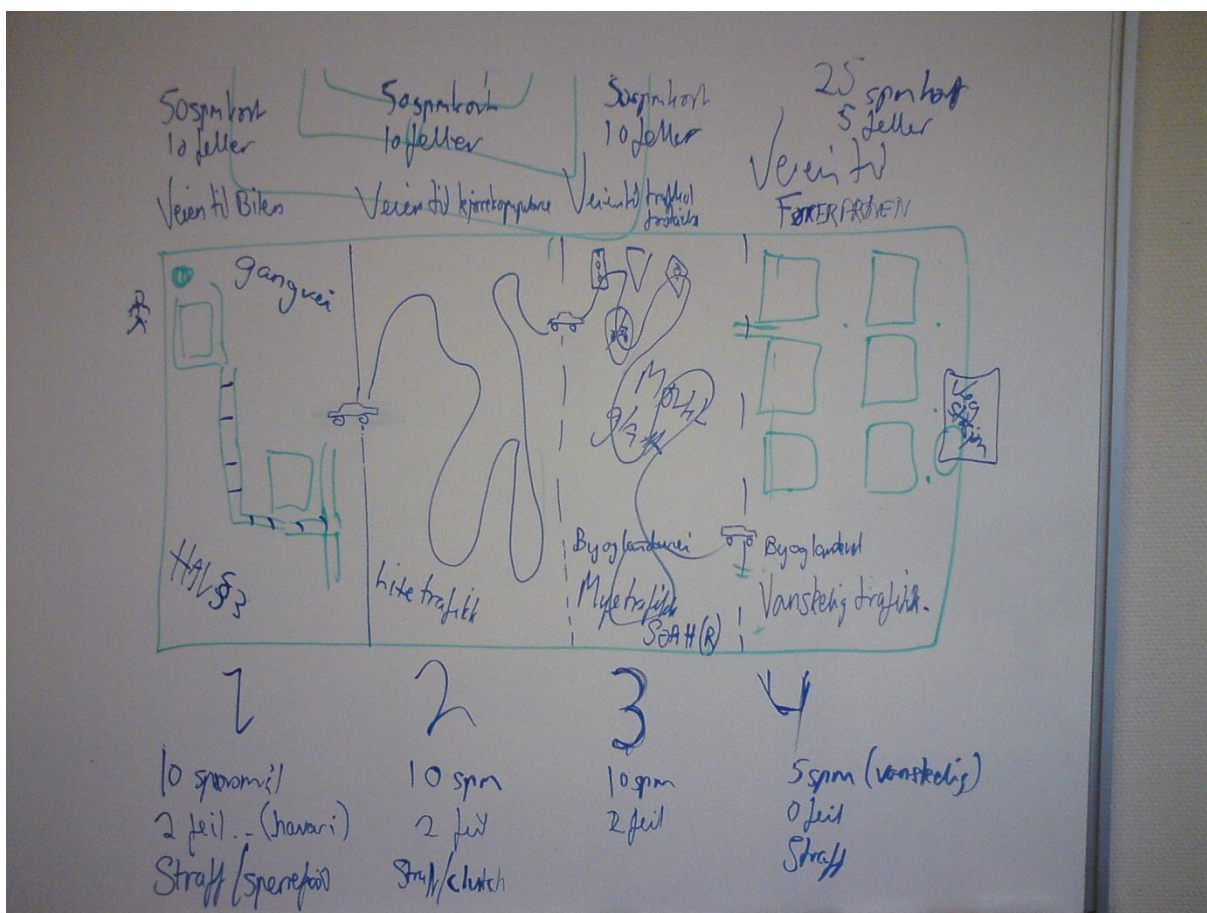 50 spmkort
10 feller
Veien til Bilen
50 spmkort
10 feller
Veien til kjørekompetanse
50 spmkort
10 feller
Veien til trafikal
25 spmkort
5 feller
Veien til
FØRERPRØVEN
gangvei
HAV §3
Lite trafikk
MØRKE
By og landevei
Mye trafikk
SJAH(R)
Veg
By og landevei
Vanskelig trafikk.
1
2
3
4
10 spørsmål
2 feil .. (havari)
Straff/
10 spm
2 feil
Straff/clutch
10 spm
2 feil
5 spm (vanskelig)
0 feil
Straff